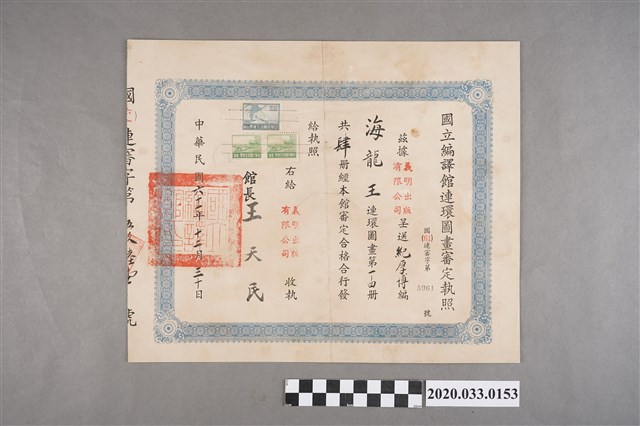 國立編譯館連環圖畫審定執照
國(61)連審字第5961號
茲據義明出版有限公司呈送紀厚博編
海龍王連環圖畫第一-四冊
共肆冊經本館審定合格合行發
給執照
右給義明出版有限公司收執
館長王天民
中華民國六十一年十二月三十日
連審字第
號
2020.033.0153